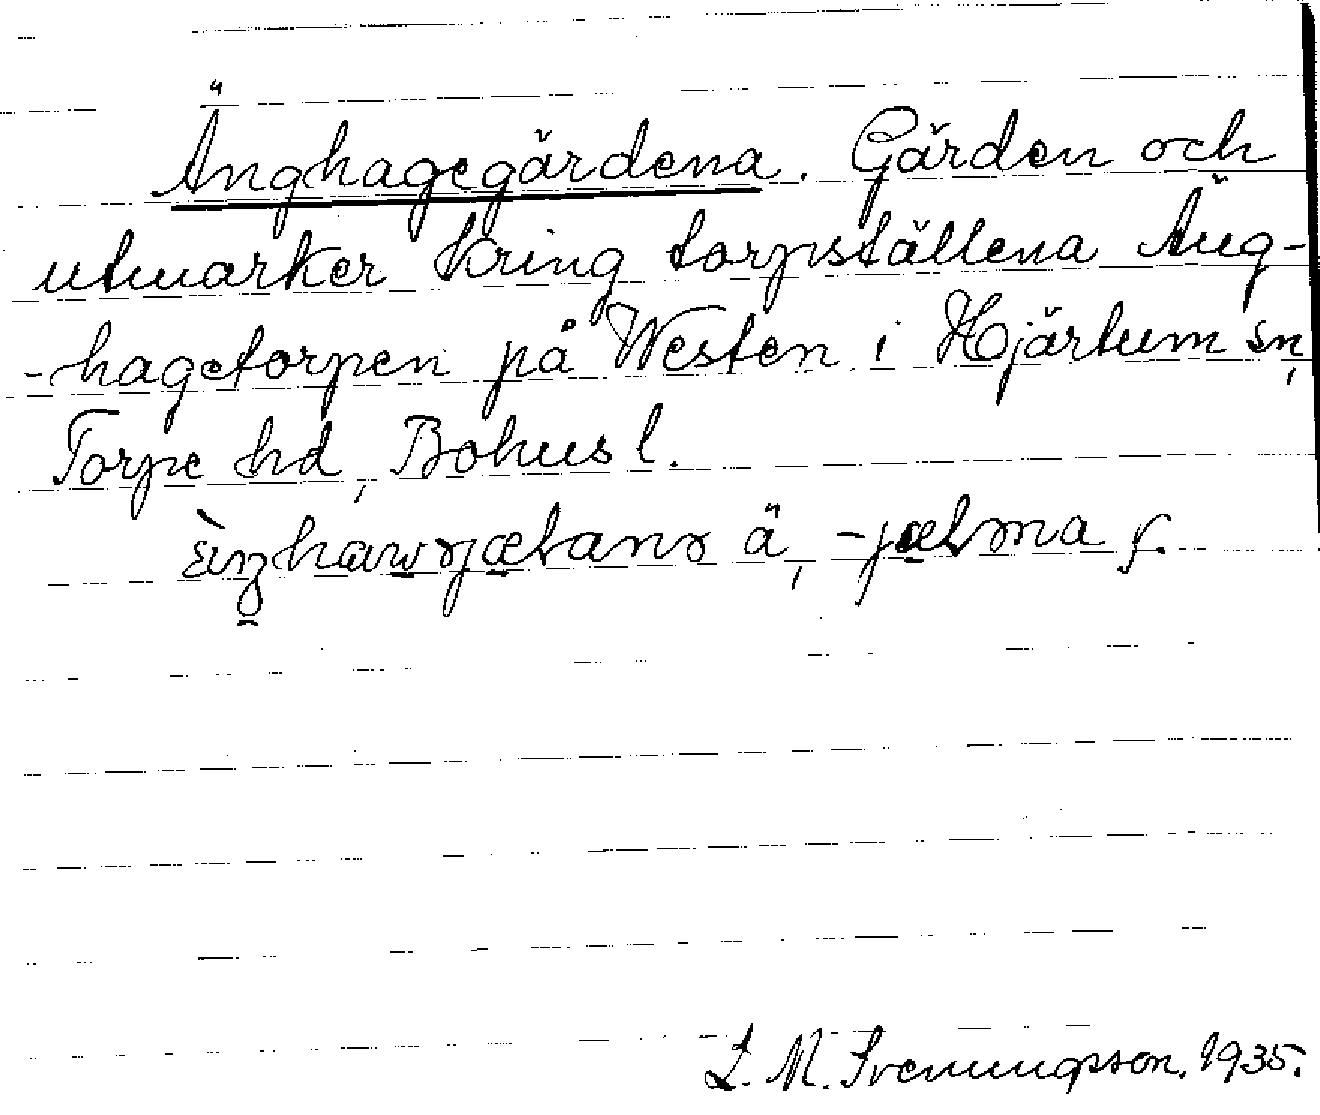 Änghagegärdena. Gärden och
utmarker kring torpställena Äng-
-hagetorpen på Westen i Hjärtum sn,
Torpe hd, Bohusl.
ä, f.
L. M. Svenungsson. 1935.